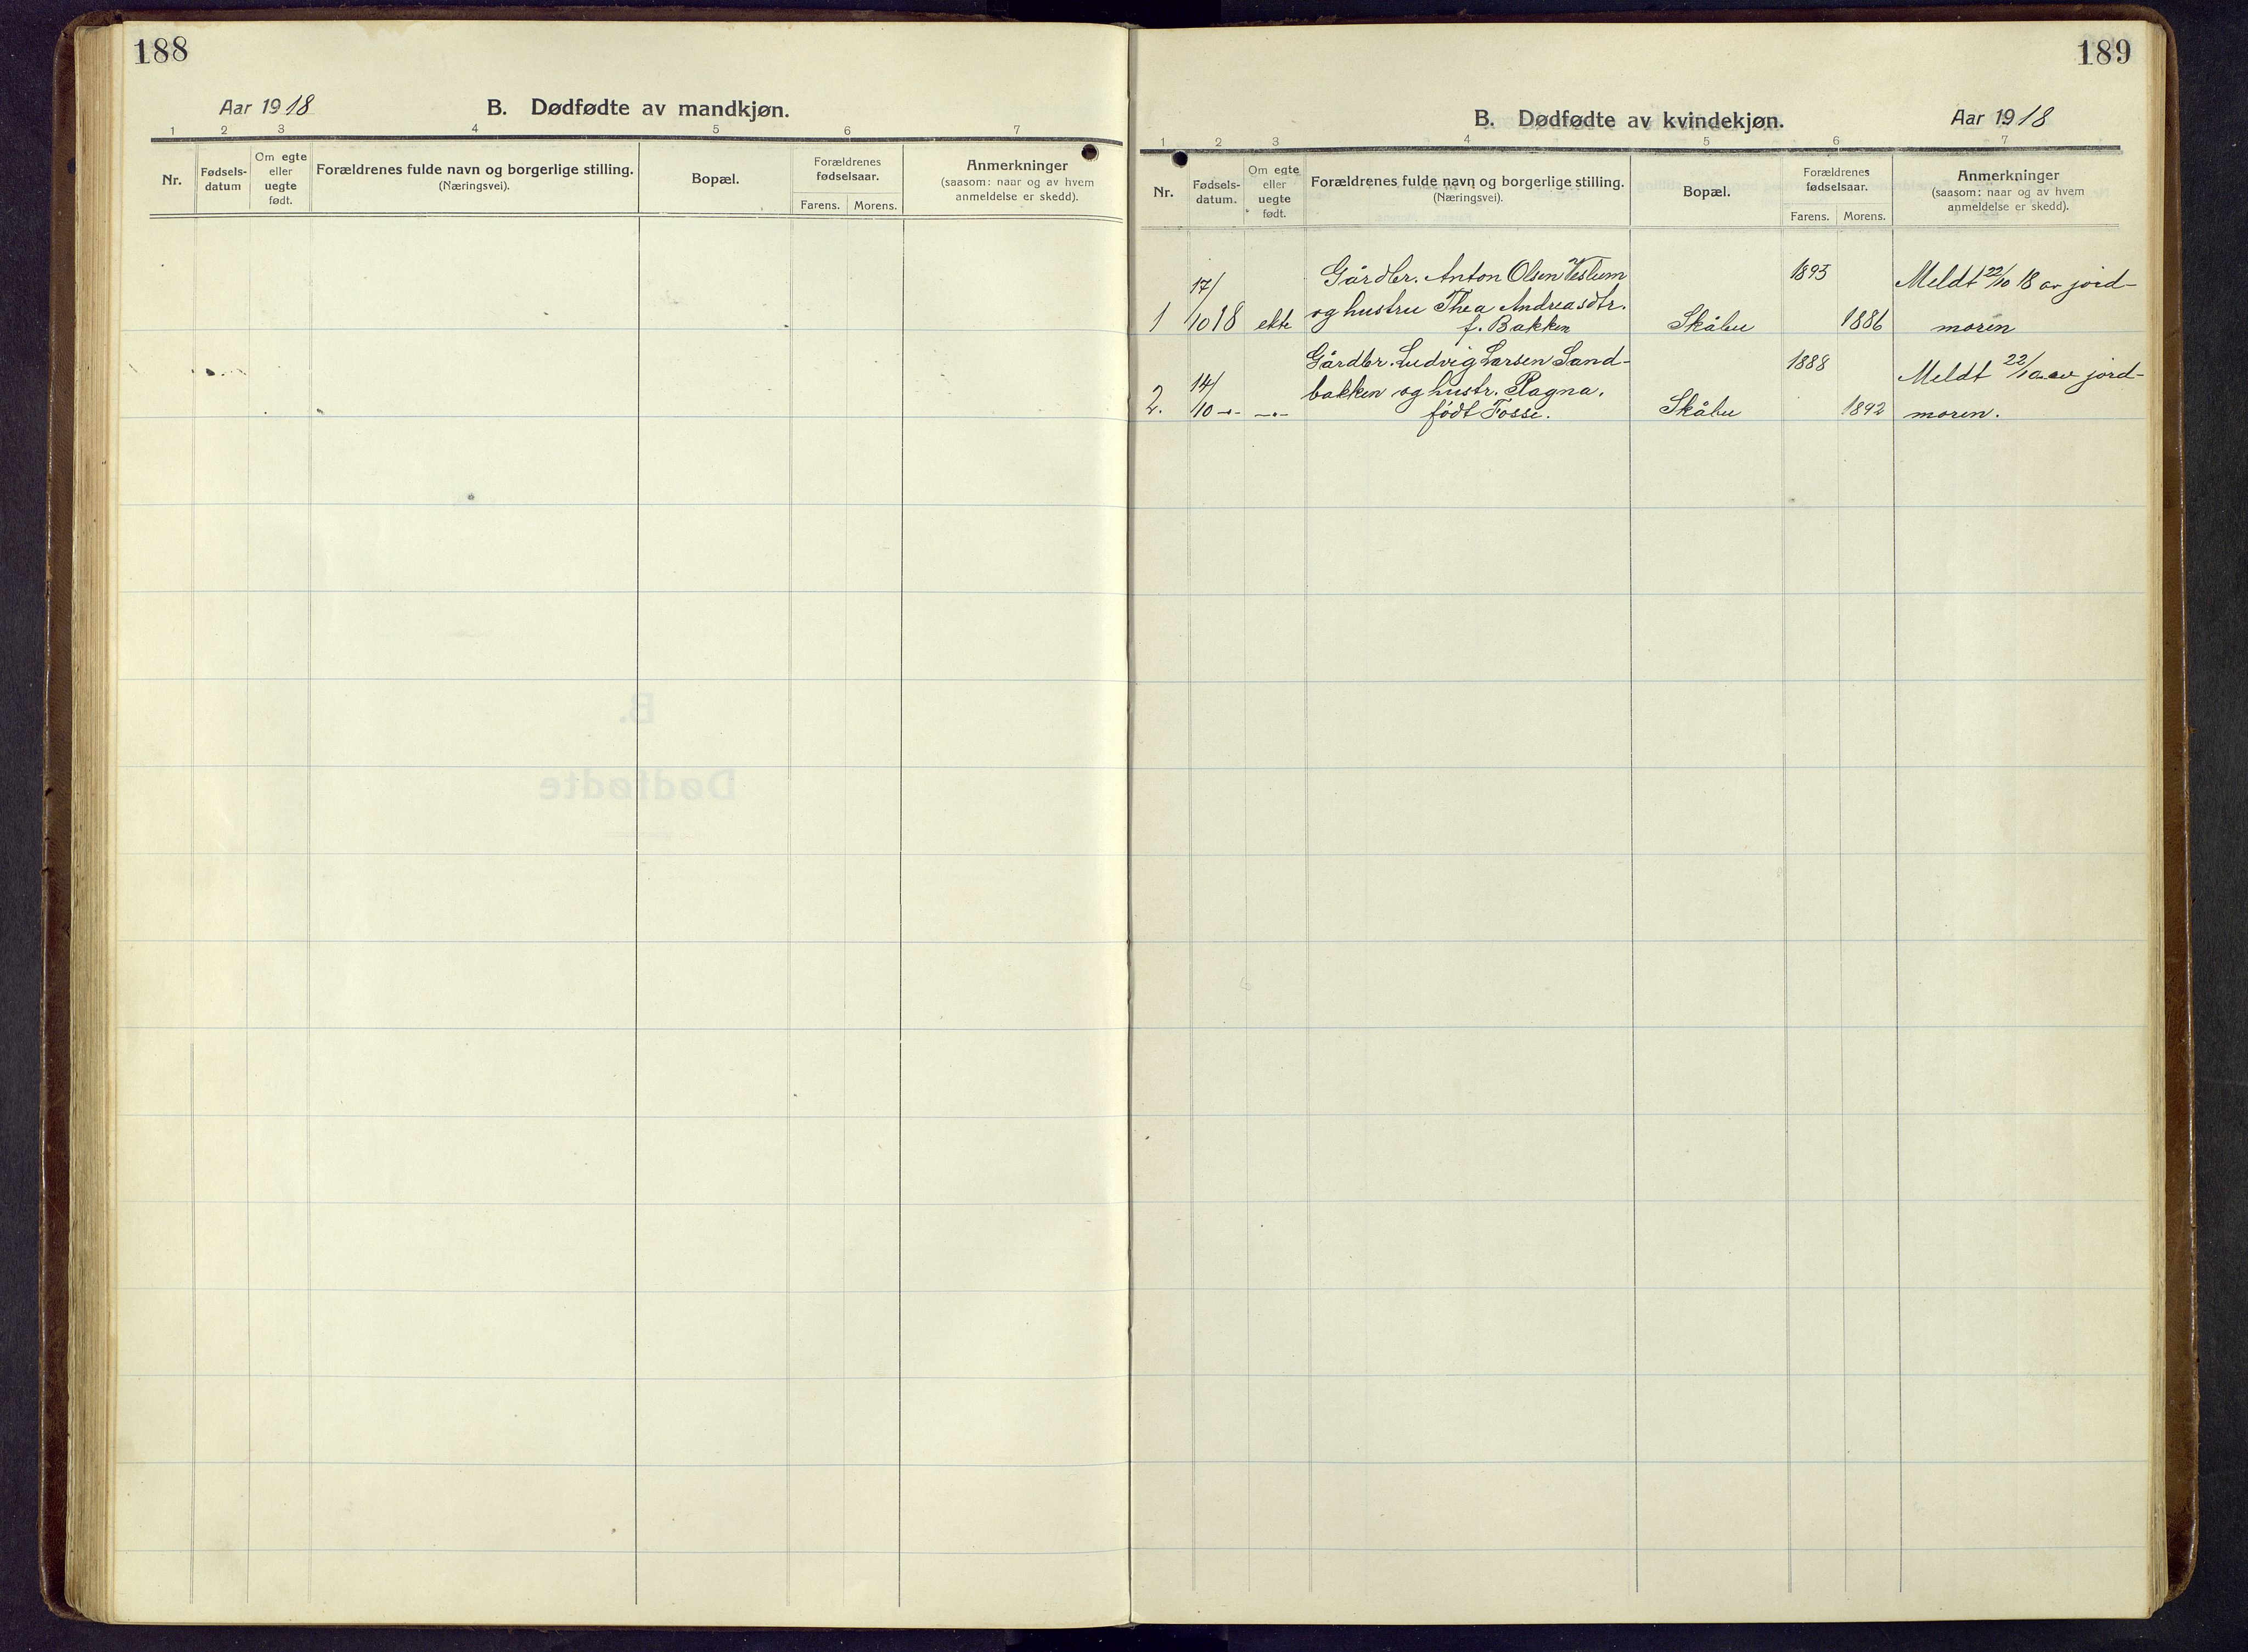 188
Aar 1918
B. Dødfødte av mandkjøn.
1 2 3 4 5 6 7
Nr.
Fødsels-
datum
Om egte
eller
uegte
født.
Forældrenes fulde navn og borgerlige stilling.
(Næringsvei).
Bopæl.
Forældrenes
fødselsaar.
Farens. Morens.
Anmerkninger
(saasom: naar og av hvem
anmeldelse er skedd).
189
B. Dødfødte av kvindekjøn.
Aar 1918
1 2 3 4 5 6 7
Nr.
Fødsels-
datum.
Om egte
eller
uegte
født.
Forældrenes fulde navn og borgerlige stilling.
(Næringsvei).
Bopæl.
Forældrenes
fødselsaar.
Farens. Morens.
Anmerkninger
(saasom: naar og av hvem
anmeldelse er skedd).
Gårdbr. Anton Olsen Veslum 1893 Meldt 22/10 18 av jord-
17/
og hustru Thea Andreasdtr.
1 10 18 ekte f. Bakken Skåbu 1886 moren
Gårdbr. Ludvig Larsen Sand- 1888 Meldt 22/10 av jord-
14/
bakken og hustr. Ragna,
2. 10 -"- -"- født Fosse. Skåbu 1892 moren.